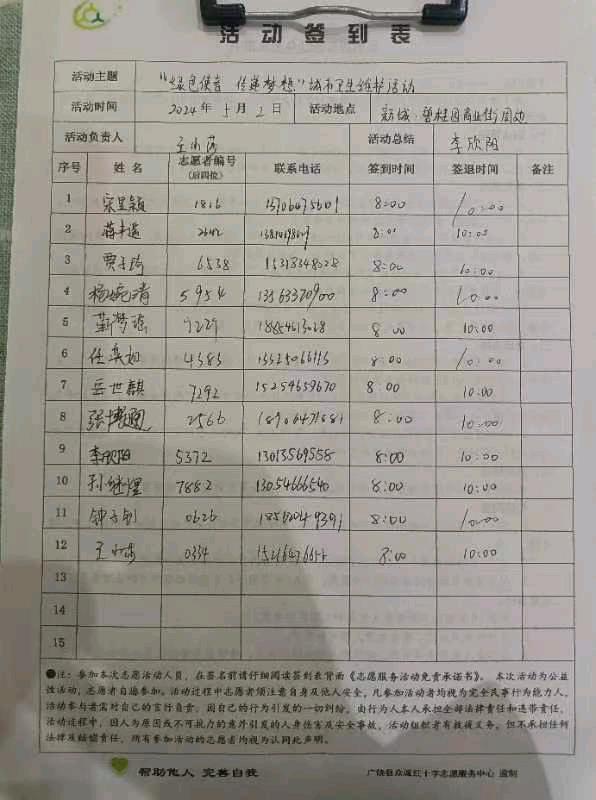 活动签到表
活动主题 "绿色使者 传递梦想"城市卫生维护活动
活动时间 2024年5月2日 活动地点 新城·碧桂园商业街周边
活动负责人 活动总结 李欣阳
序号 姓名 志愿者编号(后四位) 联系电话 签到时间 签退时间 备注
1 1816 8:00 10:00
2 8:00 10:00
3 贾子琦 6538 15318348028 8:00 10:00
4 杨婉清 5954 13563370900 8:00 10:00
5 靳梦瑶 7227 8:00 10:00
6 任奕如 4383 8:00 10:00
7 岳世麒 7292 15254659670 8:00 10:00
8 2566 8:00 10:00
9 李欣阳 5372 13013569558 8:00 10:00
10 7882 13054666540 8:00 10:00
11 0626 8:00 10:00
12 0334 8:00 10:00
13
14
15
●注:参加本次志愿活动人员,在签名前请仔细阅读签到表背面《志愿服务活动免责承诺书》。本次活动为公益
性活动,志愿者自愿参加。活动过程中志愿者须注意自身及他人安全。凡参加活动者均视为完全民事行为能力人,
活动参与者需对自己的言行自负。因自己的行为引发的一切纠纷,由行为人本人承担全部法律责任和连带责任。
活动过程中,因人为原因或不可抗力的意外引发的人身伤害及安全事故,活动组织者有救援义务。但不承担任何
法律及赔偿责任,所有参加活动的志愿者均视为认同此声明。
帮助他人 完善自我 广饶县众诚红十字志愿服务中心 监制